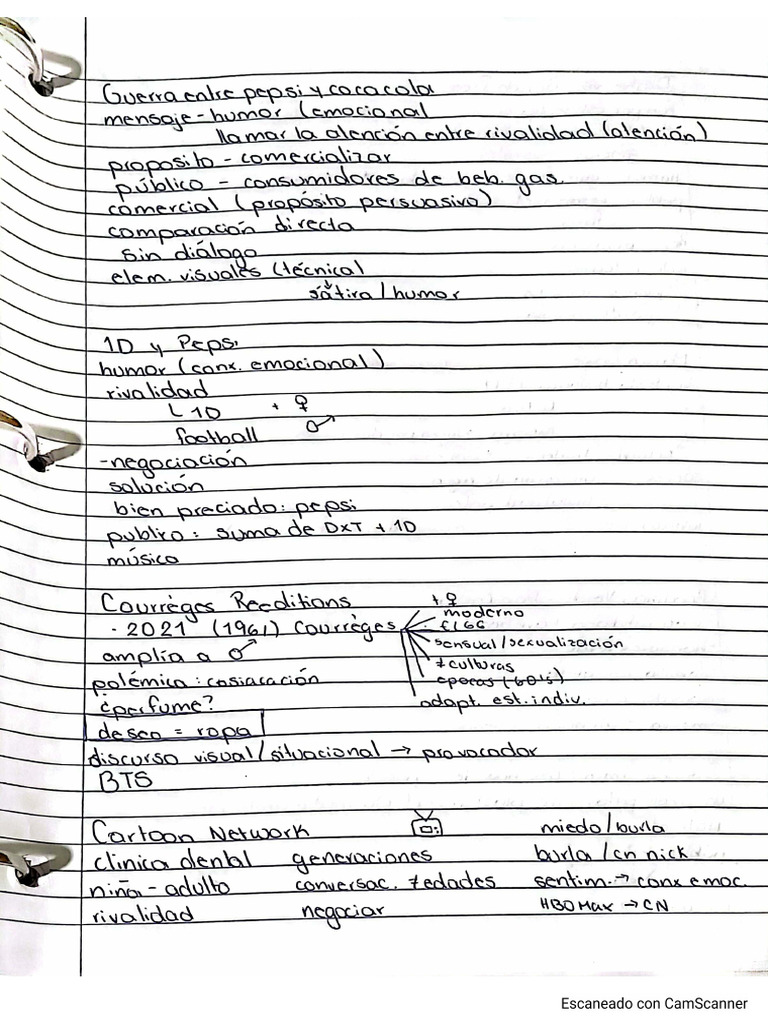 Guerra entre pepsi y coca cola
mensaje - humor (emocional
llamar la atención entre rivalidad (atención)
proposito - comercializar
público - consumidores de beb. gas.
comercial (propósito persuasivo)
comparación directa
sin diálogo
elem. visuales (técnica)
sátira / humor
1D y Pepsi
humor (conx. emocional)
rivalidad
L 1D + ♀
football ♂
- negociación
solución
bien preciado: pepsi
publico: suma de DxT + 1D
música
Courrèges Reeditions + ♀
moderno
· 2021 (1961) Courrèges
amplía a ♂ sensual/sexualización
≠ culturas
polémica: cosiacación epocas (60's)
¿perfume? adapt. est. indiv.
deseo = ropa
discurso visual/situacional → provocador
BTS
Cartoon Network miedo/burla
clinica dental generaciones burla / cn nick
niña - adulto conversac. ≠ edades sentim. → conx emoc.
rivalidad negociar HBO Max → CN
Escaneado con CamScanner